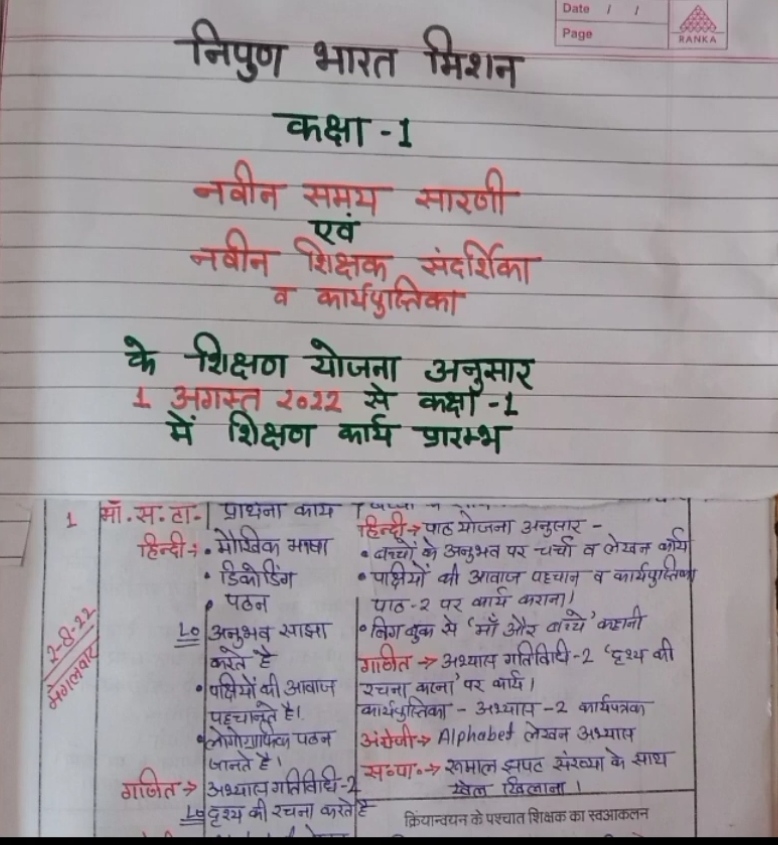 Date / /
Page
RANKA
निपुण भारत मिशन
कक्षा - 1
नवीन समय सारणी
एवं
नवीन शिक्षक संदर्शिका
व कार्यपुस्तिका
के शिक्षण योजना अनुसार
1 अगस्त 2022 से कक्षा - 1
में शिक्षण कार्य प्रारम्भ
1
2-8-22
मंगलवार
माँ. स. टा.
हिन्दी →
गणित →
प्रार्थना कार्य
• मौखिक भाषा
• डिकोडिंग
• पठन
Lo अनुभव साझा
करते है
• पक्षियों की आवाज
पहचानते है।
• लोगोग्राफिक पठन
जानते है।
अभ्यास गतिविधि-2
Lo दृश्य की रचना करते है
हिन्दी → पाठ योजना अनुसार -
• बच्चों के अनुभव पर चर्चा व लेखन कार्य
• पक्षियों की आवाज पहचान व कार्यपुस्तिका
पाठ-2 पर कार्य कराना।
• बिग बुक से 'माँ और बच्चे' कहानी
गणित → अभ्यास गतिविधि-2 'दृश्य की
रचना करना' पर कार्य।
कार्यपुस्तिका - अभ्यास -2 कार्यपत्रक
अंग्रेजी → Alphabet लेखन अभ्यास
स०पा० → रूमाल झपट संख्या के साथ
खेल खिलाना।
क्रियान्वयन के पश्चात शिक्षक का स्वआकलन